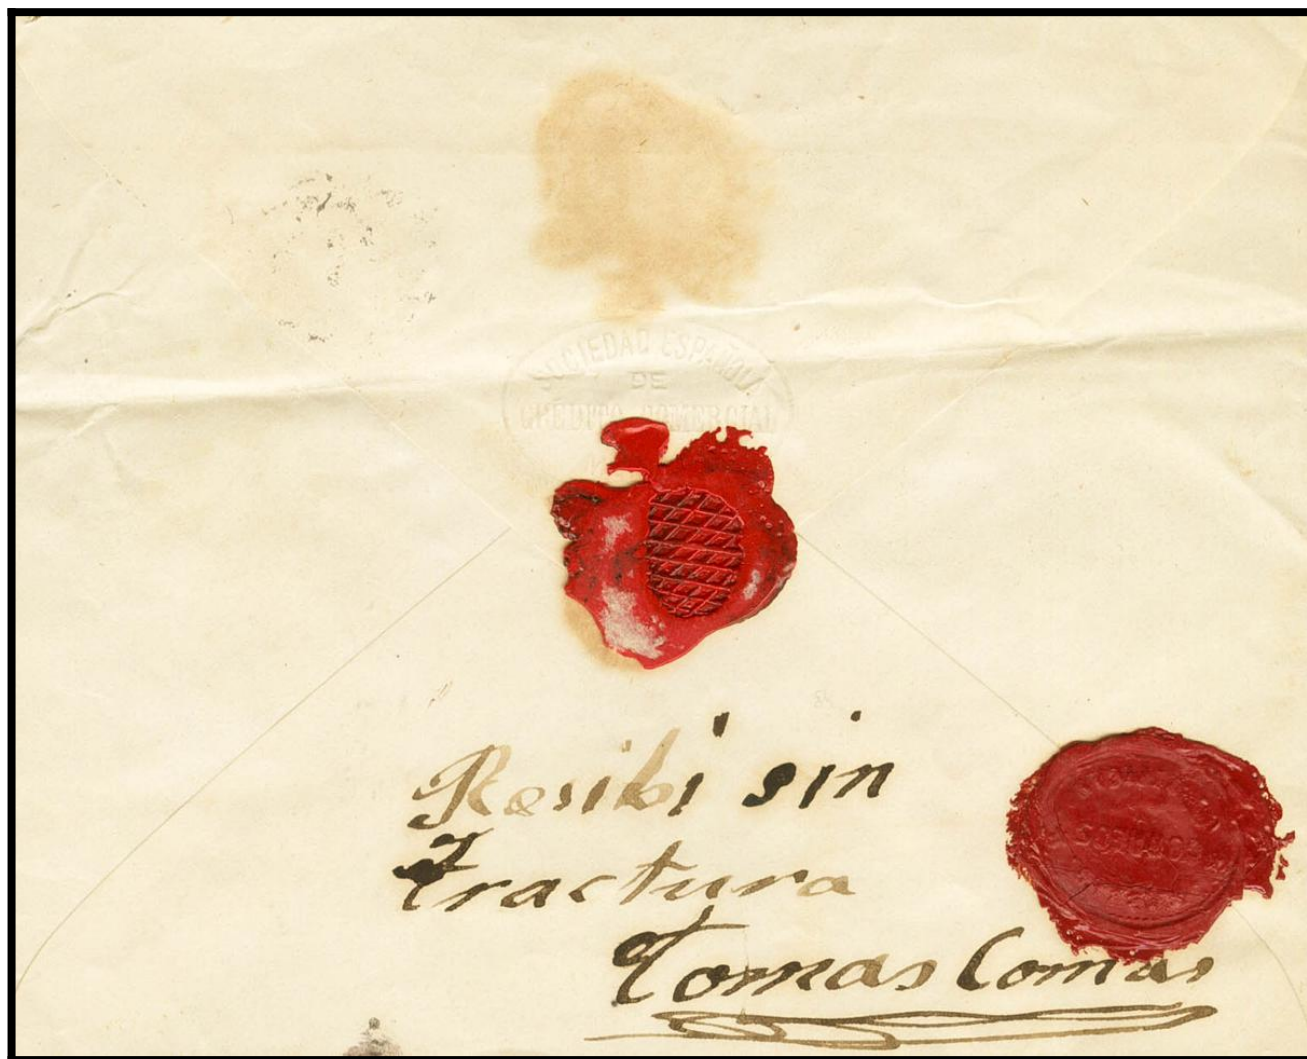 SOCIEDAD ESPAÑOLA
DE
CREDITO COMERCIAL
Resibi sin
fractura
Tomas Comas